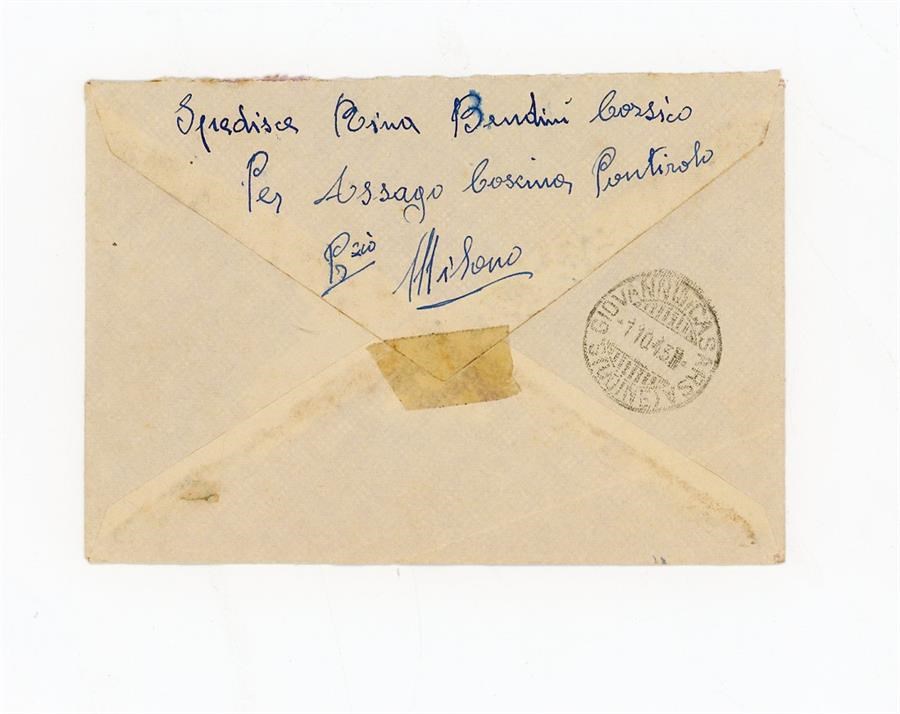 Spedisce Rina Bendini Corsico
Per Assago Cascina Pontirolo
Pzio Milano
S. GIOVANNI DI CASARSA (UDINE)
-1.10.43